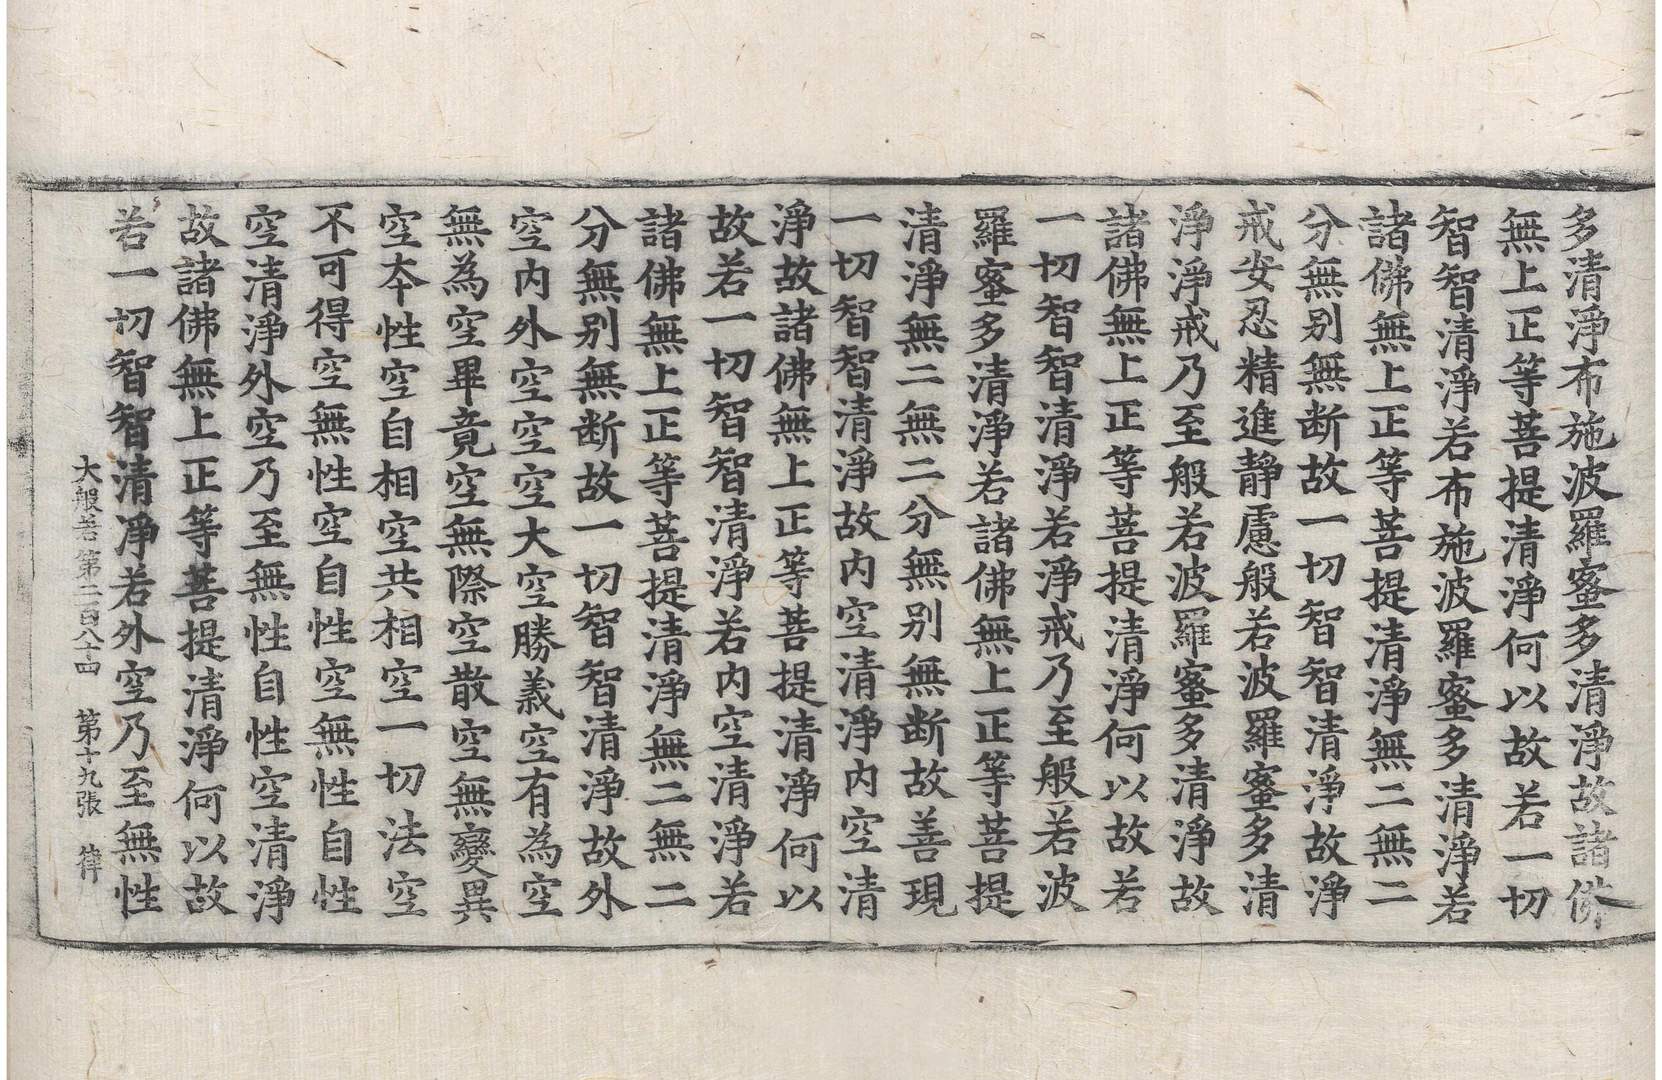 多清淨布施波羅蜜多清淨故諸佛
無上正等菩提清淨何以故若一切
智智清淨若布施波羅蜜多清淨若
諸佛無上正等菩提清淨無二無二
分無別無断故一切智智清淨故淨
戒安忍精進靜慮般若波羅蜜多清
淨淨戒乃至般若波羅蜜多清淨故
諸佛無上正等菩提清淨何以故若
一切智智清淨若淨戒乃至般若波
羅蜜多清淨若諸佛無上正等菩提
清淨無二無二分無別無断故善現
一切智智清淨故内空清淨内空清
淨故諸佛無上正等菩提清淨何以
故若一切智智清淨若内空清淨若
諸佛無上正等菩提清淨無二無二
分無別無断故一切智智清淨故外
空内外空空空大空勝義空有為空
無為空畢竟空無際空散空無變異
空本性空自相空共相空一切法空
不可得空無性空自性空無性自性
空清淨外空乃至無性自性空清淨
故諸佛無上正等菩提清淨何以故
若一切智智清淨若外空乃至無性
大般若第二百八十四 第十九張 律